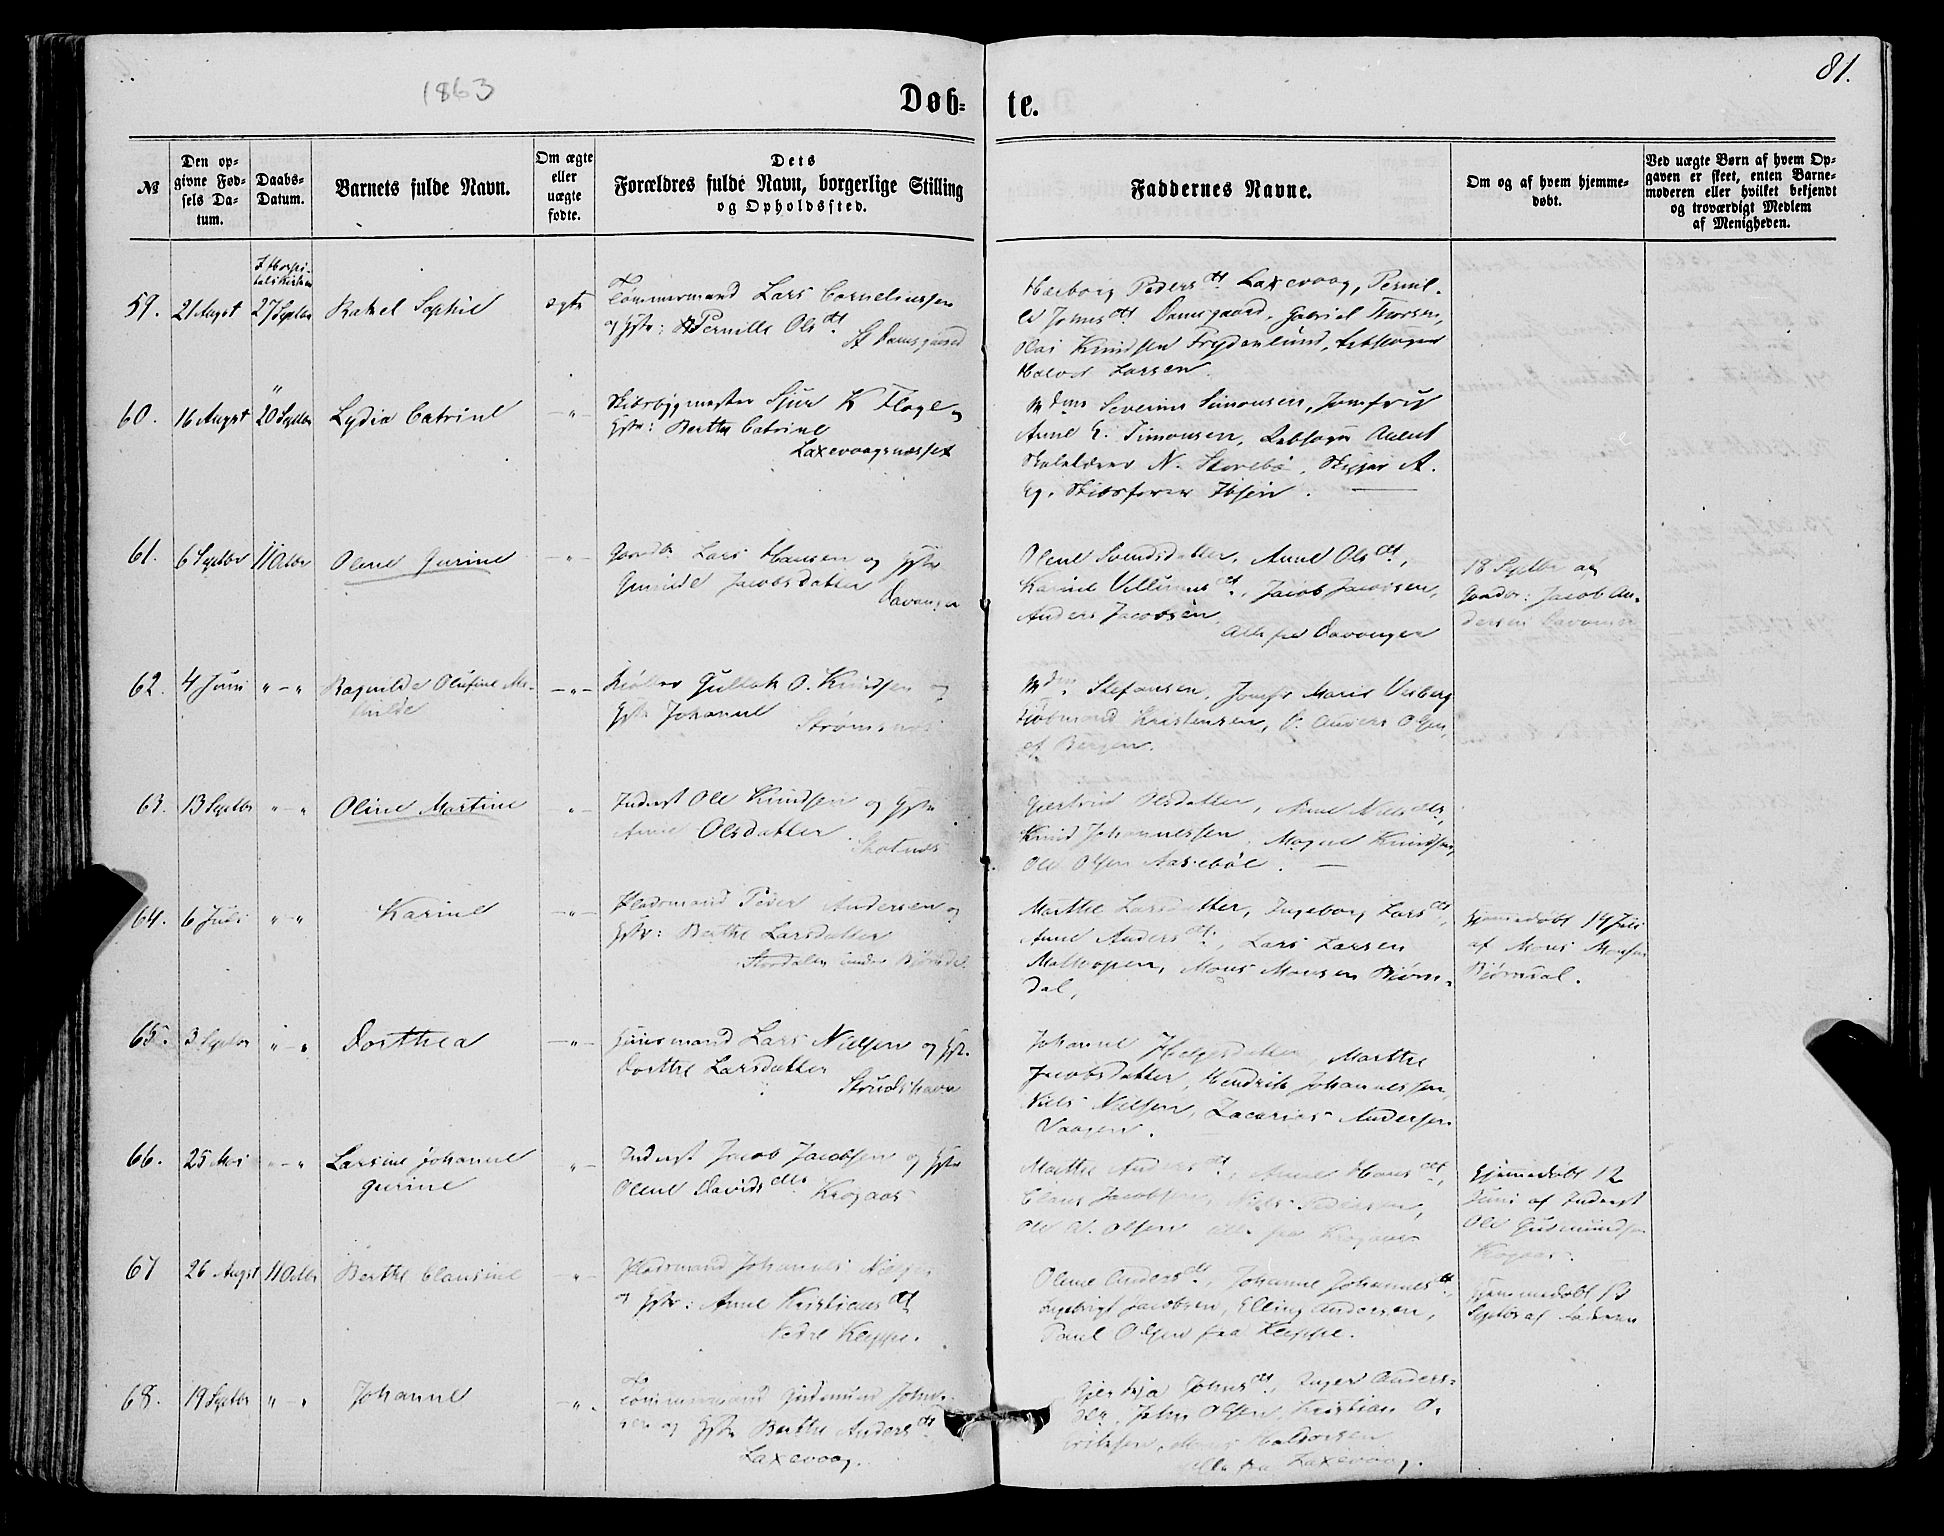 81.
1863
Døb- te.
№
Den op-
givne Fød-
sels Da-
tum.
Daabs-
Datum.
Barnets fulde Navn.
Om ægte
eller
uægte
fødte.
Dets
Forældres fulde Navn, borgerlige Stilling
og Opholdssted.
Faddernes Navne.
Om og af hvem hjemme-
døbt.
Ved uægte Børn af hvem Op-
gaven er skeet, enten Barne-
moderen eller hvilket bekjendt
og troværdigt Medlem
af Menigheden.
59. 21 August 27 Septbr Rakel Sophie ægte
Tømmermand Lars Corneliussen
og Hstr: Pernille Olsdtt
St Damsgaard
Pedersdtt Laxevaag, Pernil-
le Johnsdtt Damsgaard, Gabriel Thorsen,
Knudsen Frydenlund,
Larsen.
60. 16 Augst 20 Septbr Lydia Catrine -"-
Skibsbygmester Sjur K Fløge
Hstr: Berthe Catrine
Laxevaagsnesset
Mdm Severine Simonsen, Jomfru
Anne E. Simonsen,
N. Storebø, Skipper A.
Eg. Skibsfører Ibsen.
61. 6 Septbr 11 Octbr Olene Gurine -"-
Gaardbr. Lars Hansen og Hstr
Gunilde Jacobsdatter
Davanger
Olene Svendsdatter, Anne Olsdtt,
Karine Villumsdtt, Jacob Jacobsen,
Anders Jacobsen,
Alle fra Davanger
18 Septbr af
Gaardbr: Jacob An-
dersen Davanger
62. 4 Juni "-" Ragnilde Olufine Ma-
thilde -"-
Møller Gullak O. Knudsen og
Hstr Johanne
Strømsnes
Mdm. Stefansen, Jomfr Marie Visberg
Kristensen, O. Anders Olsen,
af Bergen.
63. 13 Septbr "-" Oline Martine "-
Inderst Ole Knudsen og Hstr
Anne Olsdatter
Gjertrud Olsdatter, Anne Nielsdtr,
Knud Johannessen, Mogne Knudsen,
Ole Olsen Aasebøe.
64. 6 Juli "-" Karine -"-
Pladsmand Peder Andersen og
Hstr: Berthe Larsdatter
Stordalen under Bjørndal
Marthe Larsdatter, Ingeborg Larsdtt,
Anne Andersdtt., Lars Larsen
Mons Monsen Bjørn-
dal,
Hjemmedøbt 14 Juli
af Mons Monsen
Bjørndal.
65. 3 Septbr "-" Dorthea -"-
Huusmand Lars Nielsen og Hstr.
Dorthe Larsdatter
Strudshavn
Johanne Helgesdatter, Marthe
Jacobsdatter, Hendrik Johannessen,
Niels Nielsen, Zacarias Andersen
Vaagen.
66. 25 Mai "-" Larsine Johanne
Gurine "-
Inderst Jacob Jacobsen og Hstr
Olene Davidsdtr Krogaas
Marthe Andersdtt, Anne Hansdtt,
Claus Jacobsen, Niels Pedersen,
Ole A. Olsen alle fra Krogaas
Hjemmedøbt 12
Juni af Inderst
Ole Gudmundsen
Krogaas.
67 26 Augst 11 Octbr Berthe Clausine -"-
Pladsmand Johannes Nilsen
og Hstr: Anne Kristiansdtt
Nedre Kleppe.
Olene Andersdtt, Johanne Johannesdtt,
Ingebrigt Jacobsen, Elling Andersen,
Poul Olsen fra Kleppe.
Hjemmedøbt 13
Septbr af Faderen
68. 19 Septbr "-" Johanne -"-
Tømmermand Gudmund Johne-
sen og Hstr Berthe Andersdtt
Laxevaag.
Johnsdtt, Inger Anders-
dtr, John Olsen, Kristian O.
Eriksen, Mons Haldorsen
Alle fra Laxevaag.